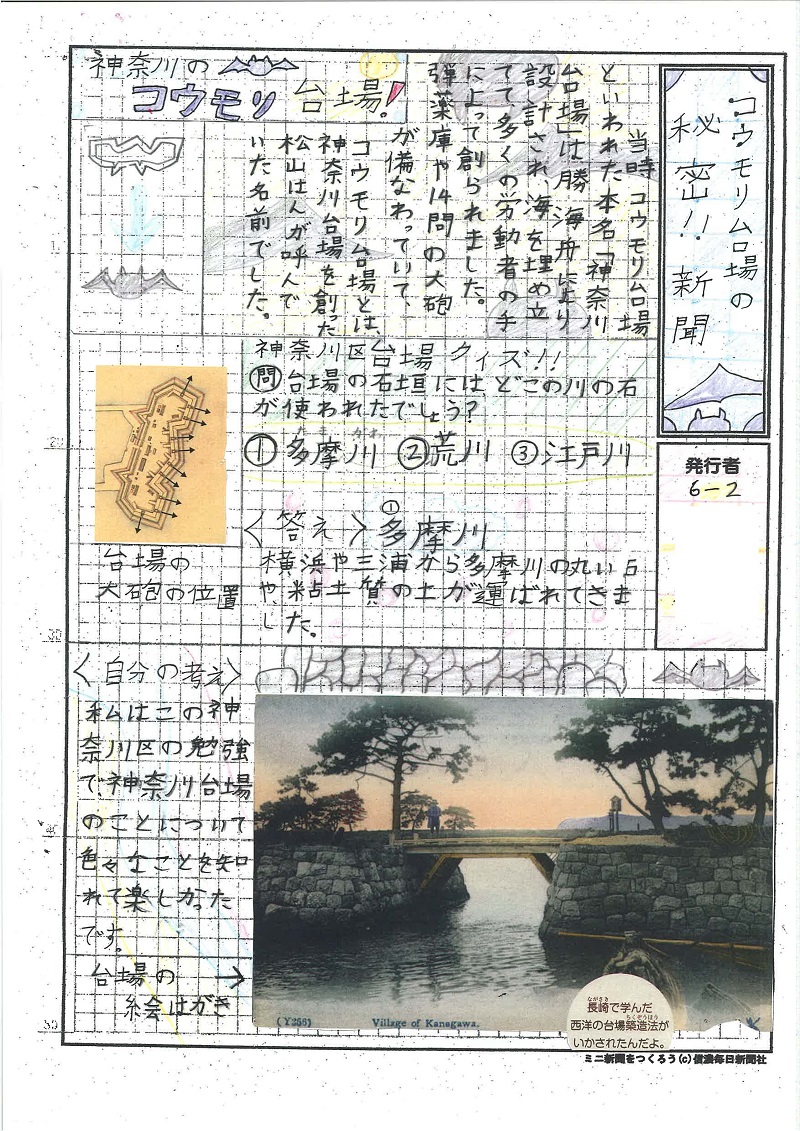 コウモリ台場の
秘密!!新聞
発行者
6-2
神奈川の
コウモリ台場!
当時コウモリ台場
といわれた本名「神奈川
台場」は勝海舟により
設計され、海を埋め立
てて、多くの労動者の手
によって創られました。
弾薬庫や14問の大砲
が備なわっていて、
コウモリ台場とは、
神奈川台場を創った
松山はんが呼んで
いた名前でした。
神奈川区台場クイズ!!
問台場の石垣には、どこの川の石
が使われたでしょう?
たまがわ
①多摩川 ②荒川 ③江戸川
<答え>①多摩川
横浜や三浦から多摩川の丸い石
や、粘土質の土が運ばれてきま
した。
台場の
大砲の位置
<自分の考え>
私はこの神
奈川区の勉強
で、神奈川台場
のことについて
色々なことを知
れて楽しかった
です。
台場の →
絵はがき
(Y256) Village of Kanagawa.
ながさき
長崎で学んだ
ちくぞうほう
西洋の台場築造法が
いかされたんだよ。
ミニ新聞をつくろう(c)信濃毎日新聞社